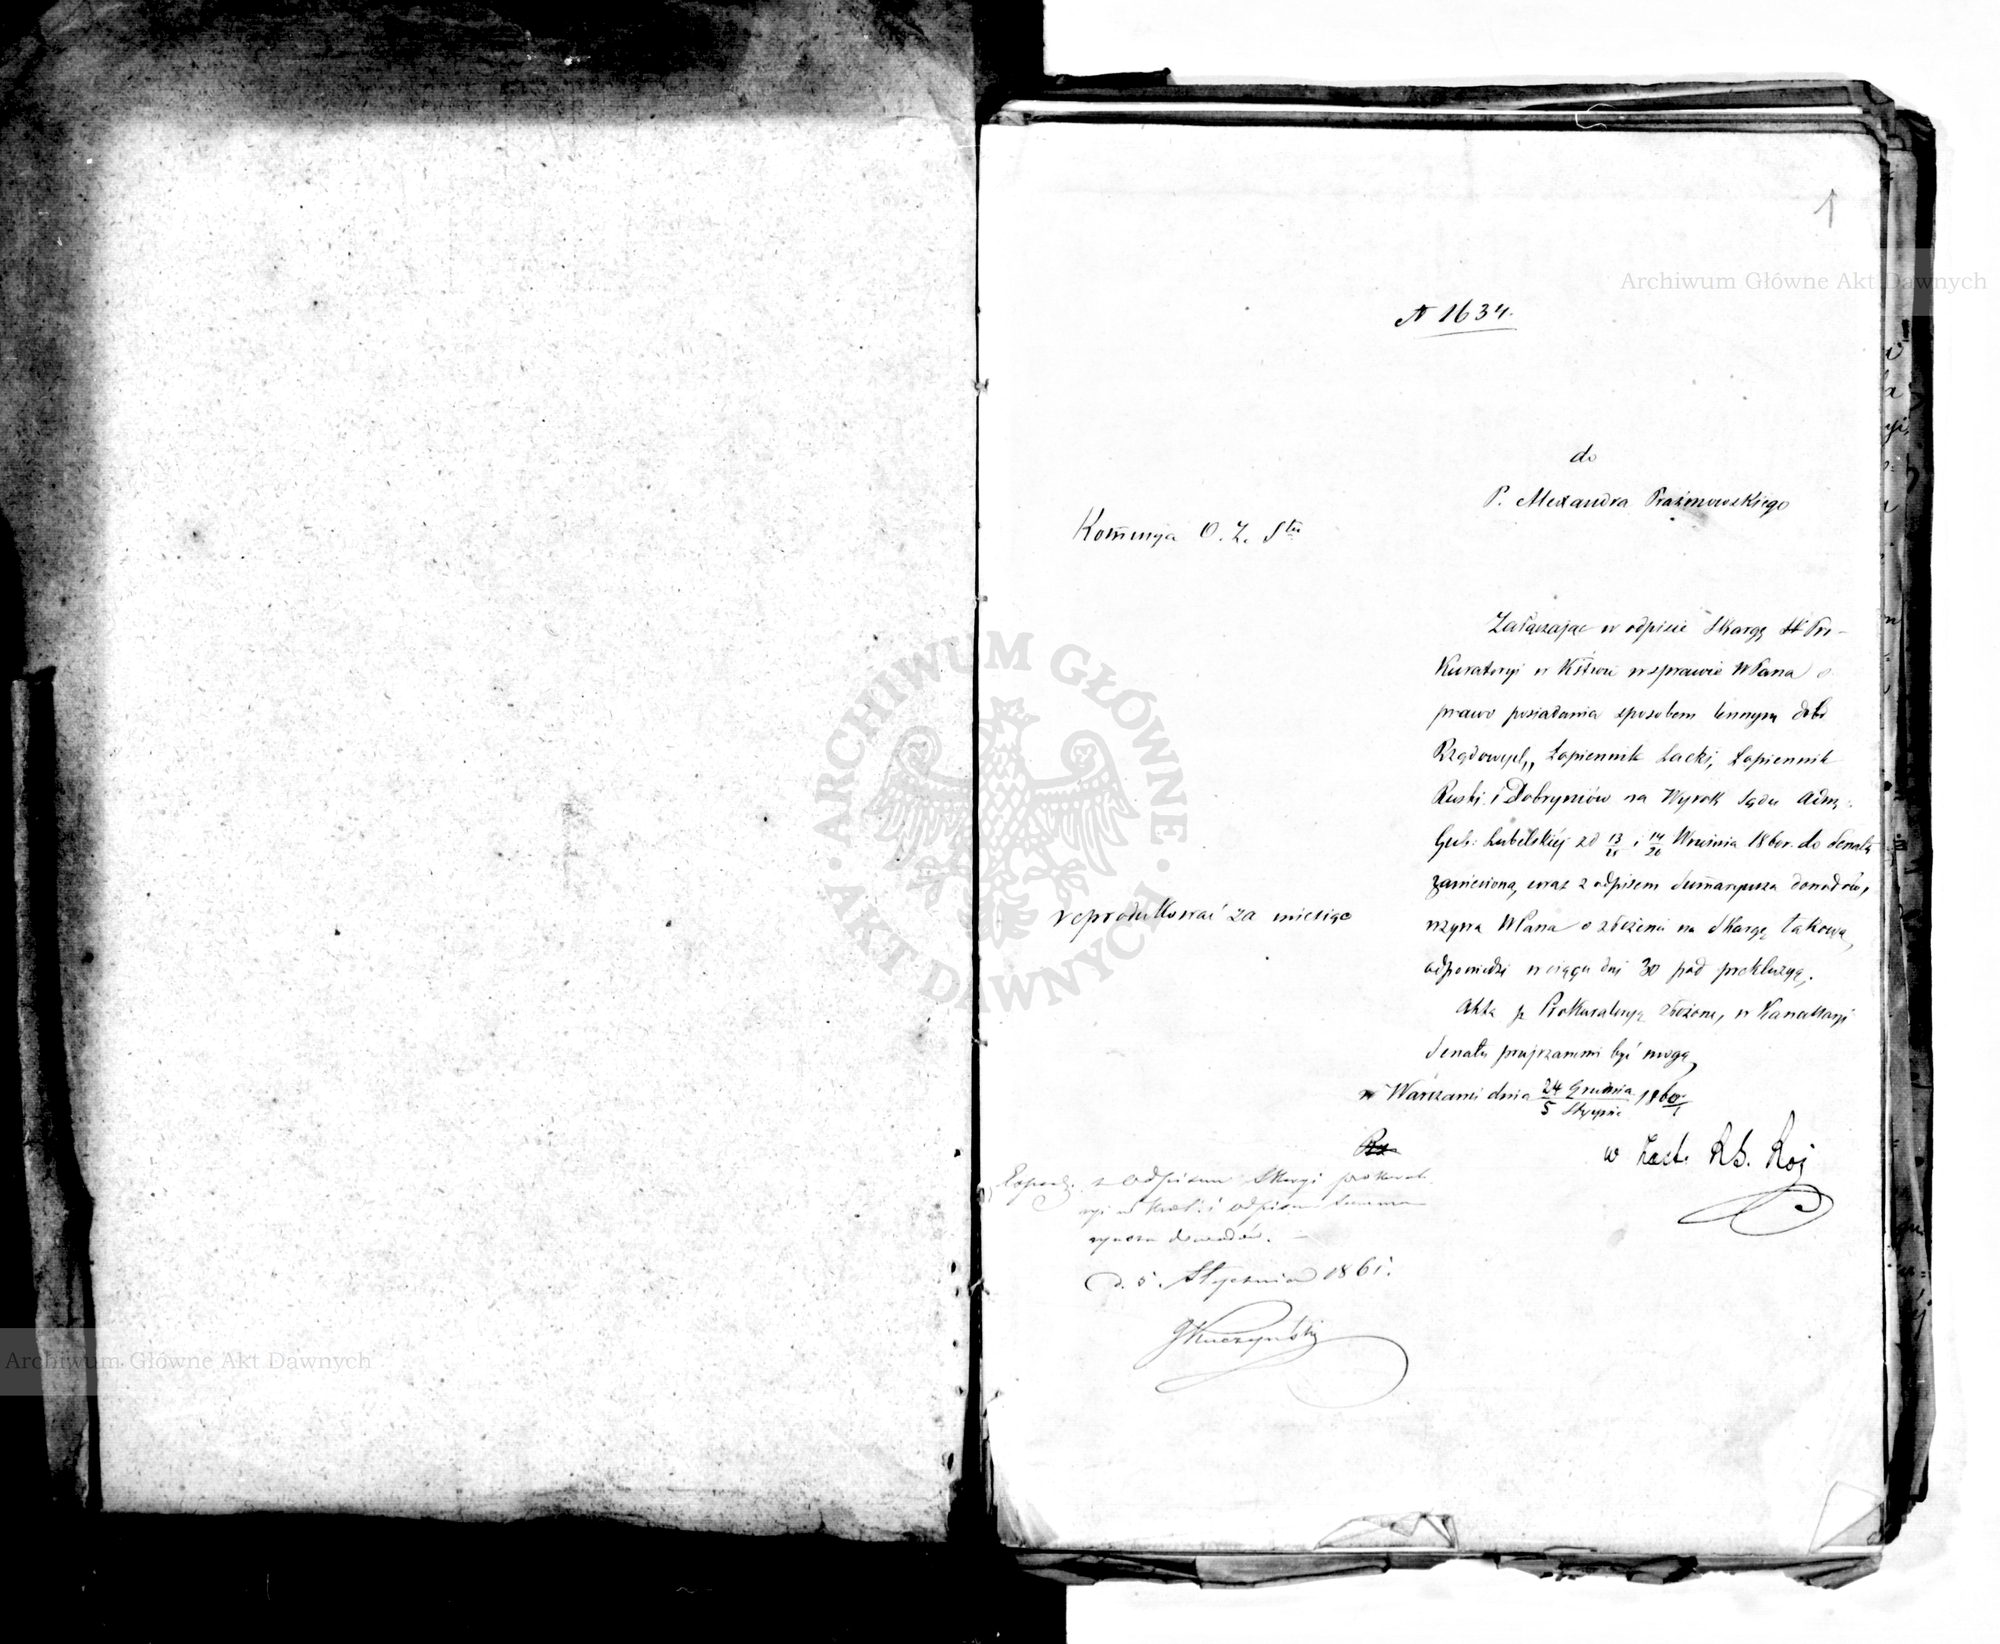 1
Archiwum Główne Akt Dawnych
№ 1634.
do
P. Alexandra Prażmowskiego
Kom̄isyja O. Z. Stu
Załączając w odpisie Skargę Pro-
Kuratoryi w Kstwie w sprawie WPana o
prawo posiadania sposobem lennym dóbr
Rządowych, Łopiennik Lacki, Łopiennik
Ruski i Dobryniów na Wyrok Sądu Adm:
Gub: Lubelskiej z d 13/25 i 14/26 Września 1860r. do Senatu
zaniesioną, wraz z odpisem Sum̄aryusza dowodów,
wzywa WPana o złożenie na Skargę takową
odpowiedzi w ciągu dni 30 pod prekluzyą.
Akta p. Prokuratoryą złożone, w Kancellaryi
Senatu przejrzanemi być mogą,
w Warszawie dnia 24 Grudnia/5 Stycznia 1860/1
reprodukować za miesiąc
w Zast.
z odpisem Skargi prokurato
ryi w Król: i odpisem Summa
ryusza dowodów. —
d. 5. Stycznia 1861.
GKuczyński
ARCHIWUM GŁÓWNE
AKT DAWNYCH
Archiwum Główne Akt Dawnych